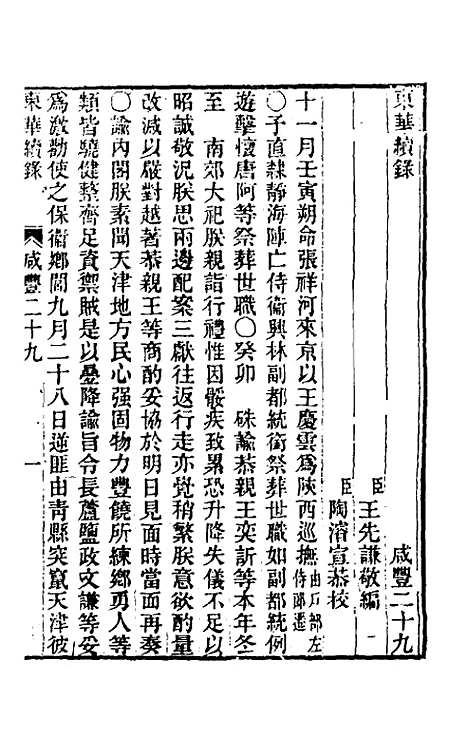 東華續錄
咸豐二十九
臣王先謙敬編
臣陶濬宣恭校
十一月壬寅朔命張祥河來京以王慶雲爲陝西巡撫由戶部左侍郎遷
〇予直隸靜海陣亡侍衞興林副都統銜祭葬世職如副都統例
遊擊懷唐阿等祭葬世職〇癸卯 硃諭恭親王奕訢等本年冬
至 南郊大祀朕親詣行禮惟因骽疾致累恐升降失儀不足以
昭誠敬況朕思兩邊配案三獻往返行走亦覺稍繁朕意欲酌量
改減以嚴對越著恭親王等商酌妥協於明日見面時當面再奏
〇諭內閣朕素聞天津地方民心强固物力豐饒所練鄉勇人等
類皆驍健整齊足資禦賊是以疊降諭旨令長蘆鹽政文謙等妥
爲激勸使之保衞鄉閭九月二十八日逆匪由靑縣突竄天津彼
東華續錄 咸豐二十九 一